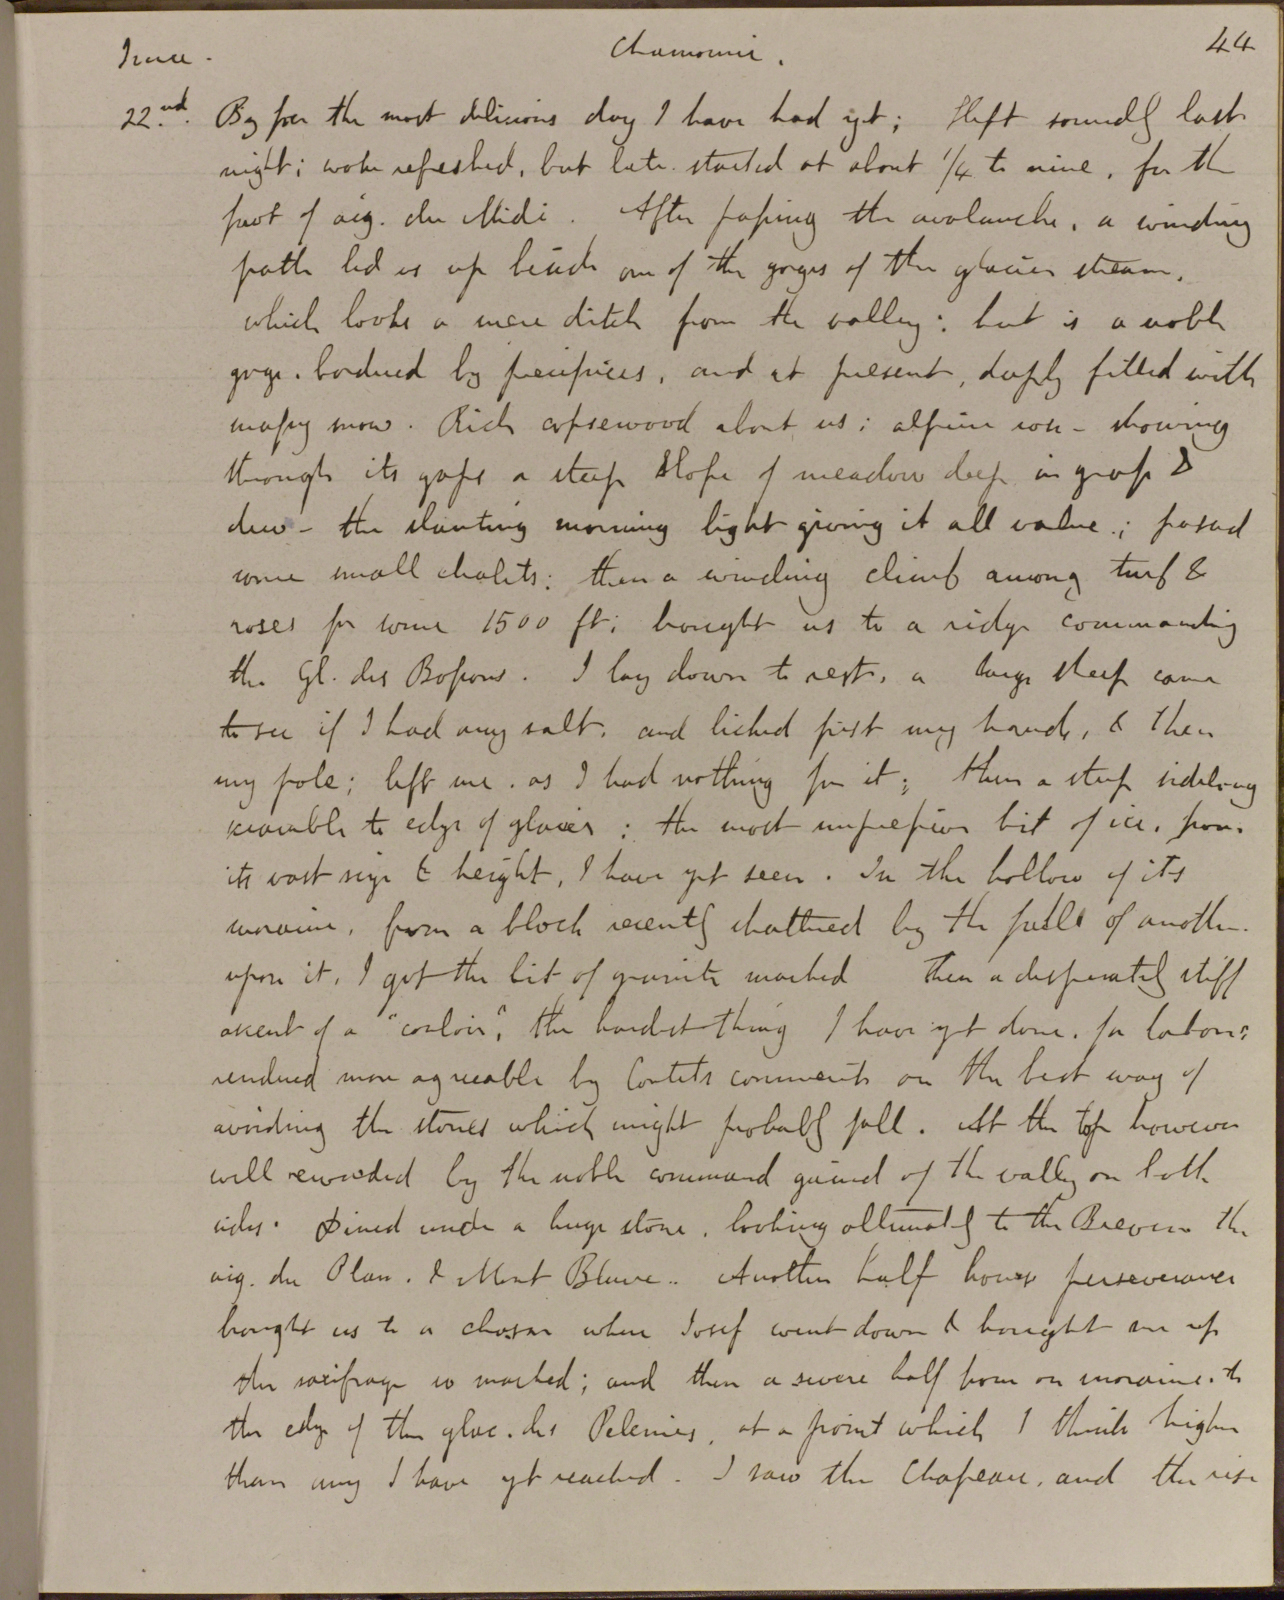 June. Chamouni. 44
22.nd. By far the most delicious day I have had yet; Slept soundly last
night; woke refreshed, but late. started at about 1/4 to nine, for the
foot of aig. du Midi. After passing the avalanche, a winding
path led us up beside one of the gorges of the glacier stream,
which looks a mere ditch from the valley: but is a noble
gorge. bordered by precipices, and at present, deeply filled with
massy snow. Rich copsewood about us; alpine rose - showing
through its gaps a steep slope of meadow deep in grass &
dew - the slanting morning light giving it all value.; passed
some small chalets: then a winding climb among turf &
roses for some 1500 ft; brought us to a ridge commanding
the Gl. des Bossons. I lay down to rest, a large sheep came
to see if I had any salt. and licked first my hands, & then
my pole; left me. as I had nothing for it; then a steep sidelong
scramble to edge of glacier; the most impressive bit of ice, from
its vast size & height, I have yet seen. In the hollow of its
moraine, from a block recently shattered by the fall of another
upon it, I got the bit of granite marked Then a desperately stiff
ascent of a "couloir", the hardest thing I have yet done, for labour;
rendered more agreeable by Coutets comments on the best way of
avoiding the stones which might probably fall. At the top however
well rewarded by the noble command gained of the valley on both
sides. Dined under a huge stone, looking alternately to the Breven the
aig. du Plan. & Mont Blanc.. Another half hours perseverance
brought us to a chasm where Josef went down & brought me up
the saxifrage so marked; and then a severe half hour on moraine. to
the edge of the glac. des Pelerins, at a point which I think higher
than any I have yet reached. I saw the Chapeau, and the rise